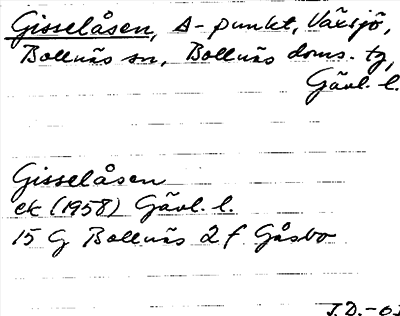 Gisselåsen, A-punkt, Växsjö,
Bollnäs sn, Bollnäs doms. tg,
Gävl. l.
Gisselåsen
ek (1958) Gävl. l.
15 G Bollnäs 2 f Gåsbo